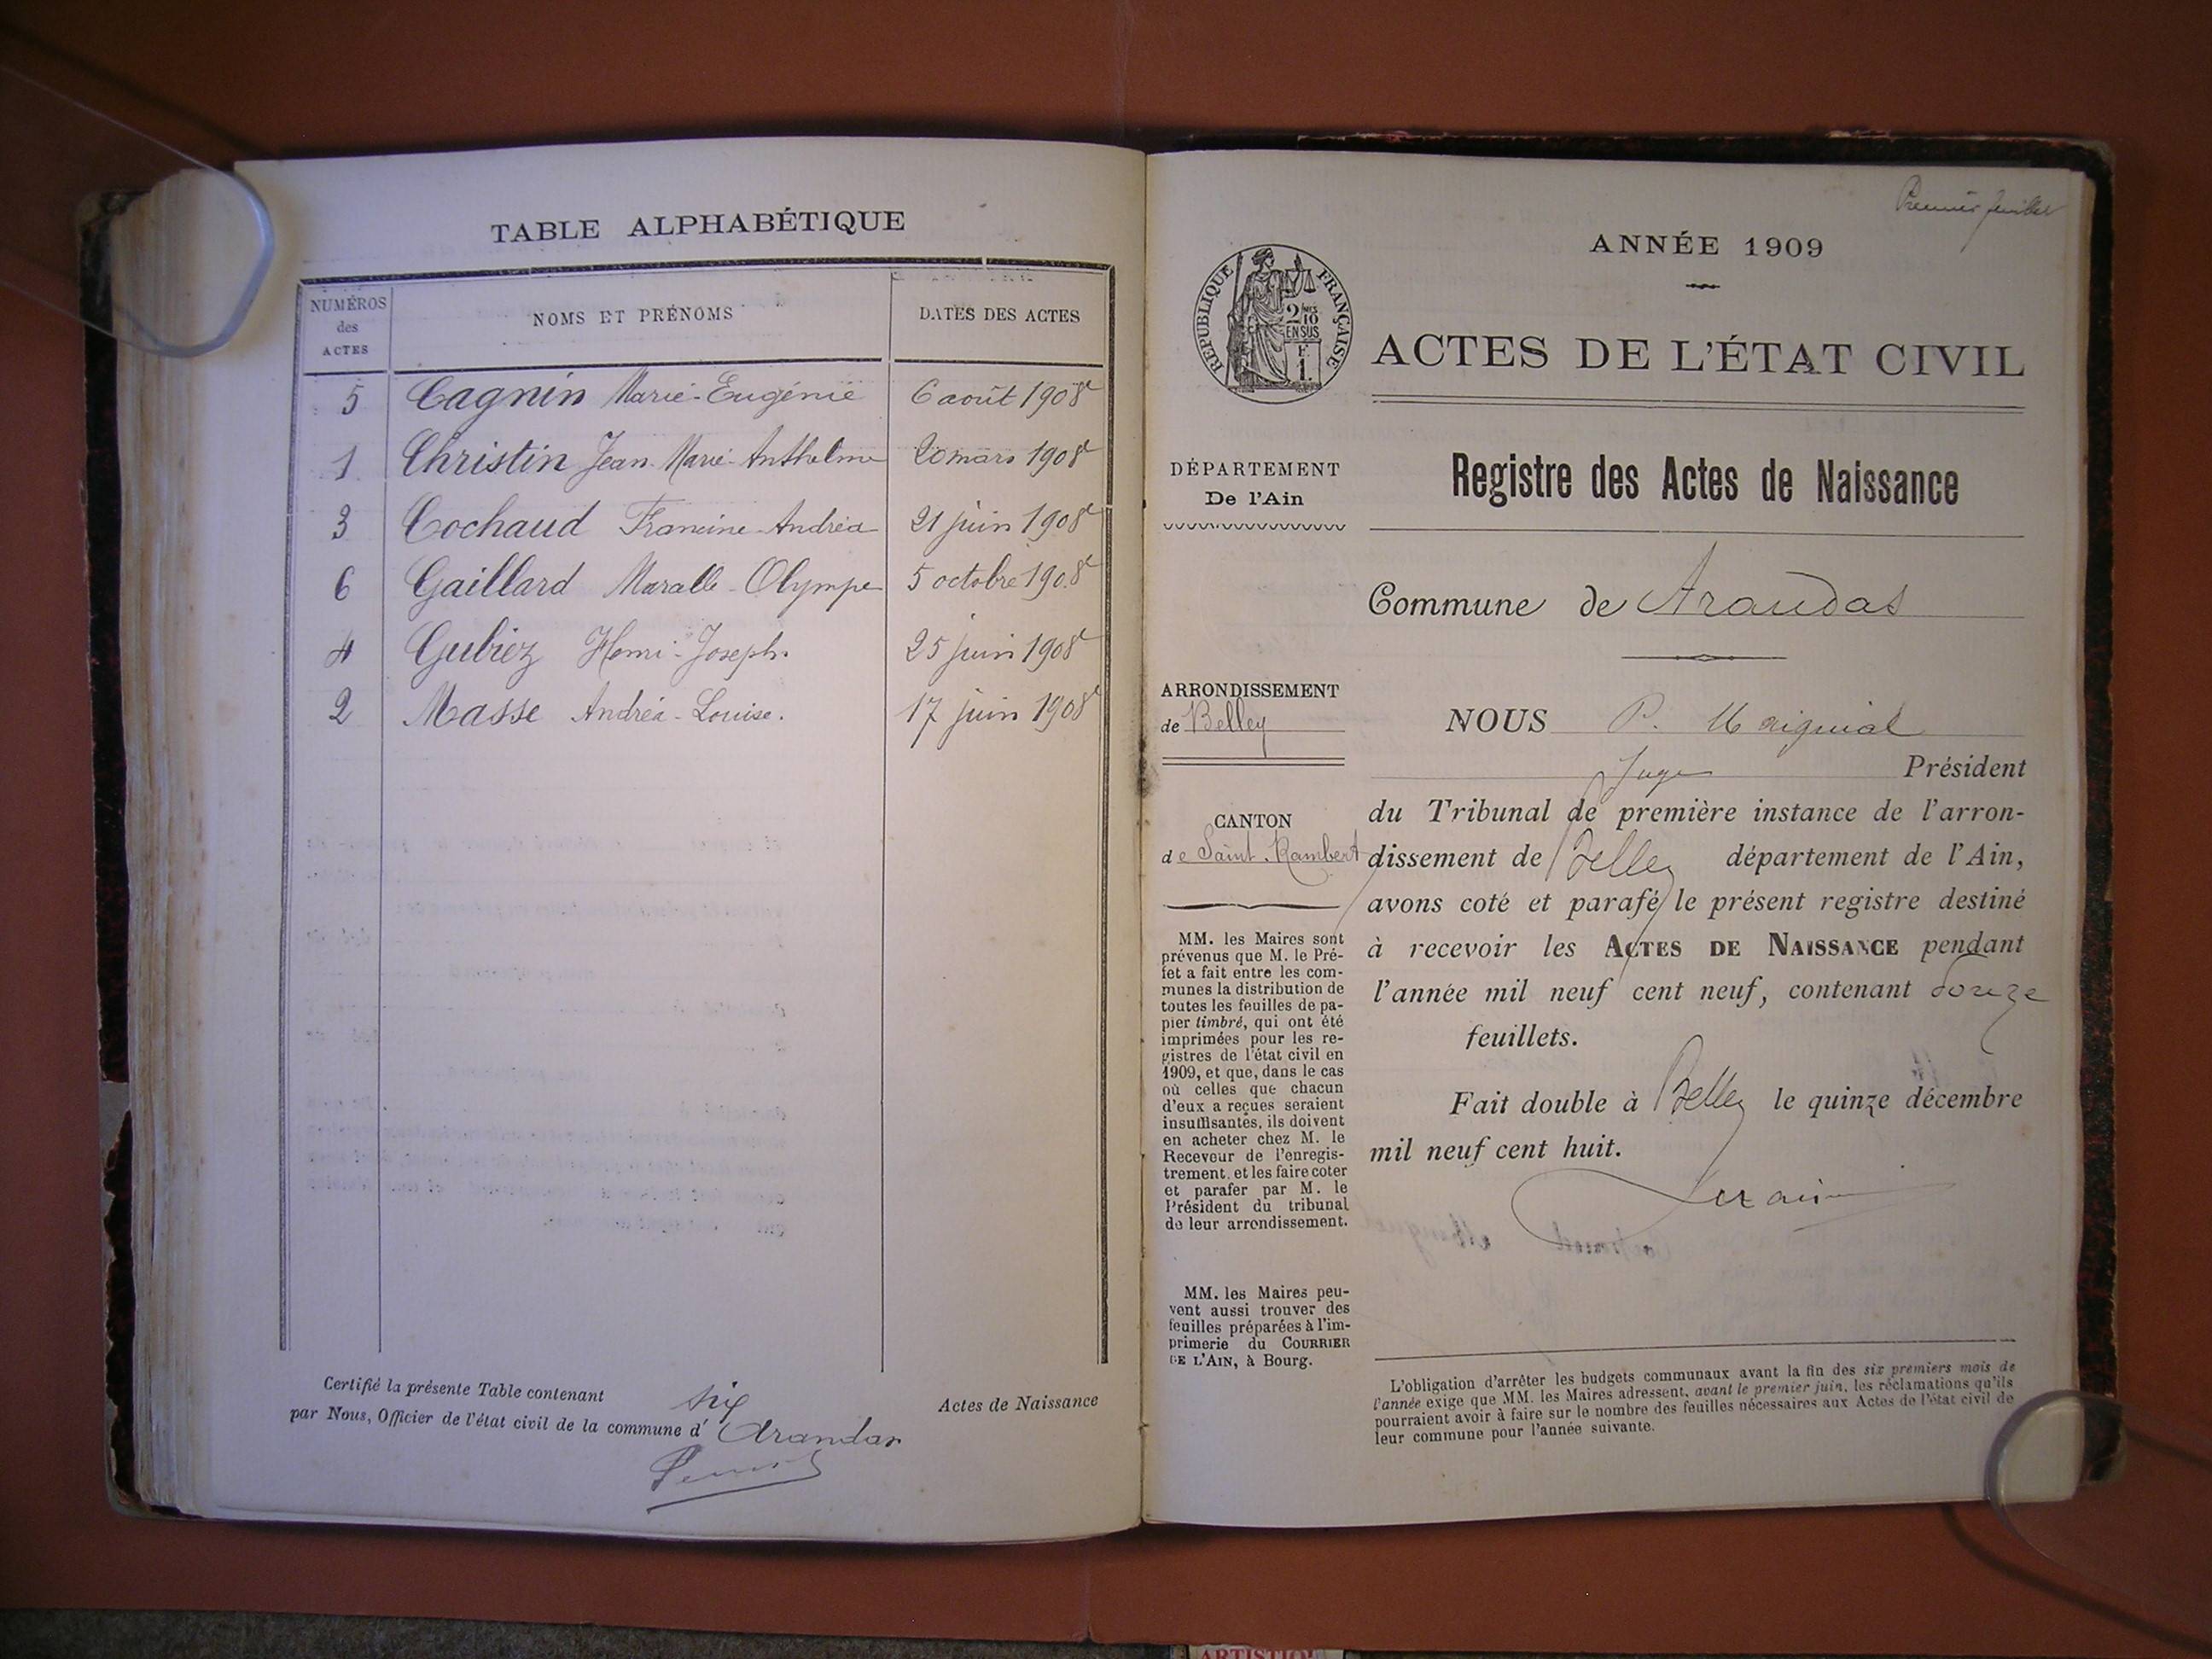 TABLE ALPHABÉTIQUE
NUMÉROS des ACTES NOMS ET PRÉNOMS DATES DES ACTES
5 Cagnin Marie-Eugénie 6 août 1908
1 Christin Jean-Marie-Anthelme 20 mars 1908
3 Cochaud Francine-Andréa 21 juin 1908
6 Gaillard Olympe 5 octobre 1908
4 Gubiez Henri-Joseph 25 juin 1908
2 Masse Andréa-Louise. 17 juin 1908
Certifié la présente Table contenant six Actes de Naissance
par Nous, Officier de l'état civil de la commune d' Arandas
Premier feuillet
ANNÉE 1909
RÉPUBLIQUE FRANÇAISE
2 10
EN SUS
ACTES DE L'ÉTAT CIVIL
DÉPARTEMENT
De l'Ain
Registre des Actes de Naissance
Commune de Arandas
ARRONDISSEMENT
de Belley
CANTON
de Saint-Rambert
MM. les Maires sont
prévenus que M. le Pré-
fet a fait entre les com-
munes la distribution de
toutes les feuilles de pa-
pier timbré, qui ont été
imprimées pour les re-
gistres de l'état civil en
1909, et que, dans le cas
où celles que chacun
d'eux a reçues seraient
insuffisantes, ils doivent
en acheter chez M. le
Receveur de l'enregis-
trement, et les faire coter
et parafer par M. le
Président du tribunal
de leur arrondissement.
MM. les Maires peu-
vent aussi trouver des
feuilles préparées à l'im-
primerie du COURRIER
DE L'AIN, à Bourg.
NOUS P.
Juge Président
du Tribunal de première instance de l'arron-
dissement de Belley département de l'Ain,
avons coté et parafé le présent registre destiné
à recevoir les ACTES DE NAISSANCE pendant
l'année mil neuf cent neuf, contenant douze
feuillets.
Fait double à Belley le quinze décembre
mil neuf cent huit.
L'obligation d'arrêter les budgets communaux avant la fin des six premiers mois de
l'année exige que MM. les Maires adressent, avant le premier juin, les réclamations qu'ils
pourraient avoir à faire sur le nombre des feuilles nécessaires aux Actes de l'état civil de
leur commune pour l'année suivante.